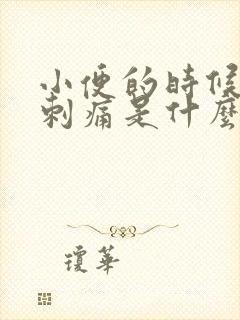 小便的時候
刺痛是什麼
瓊華